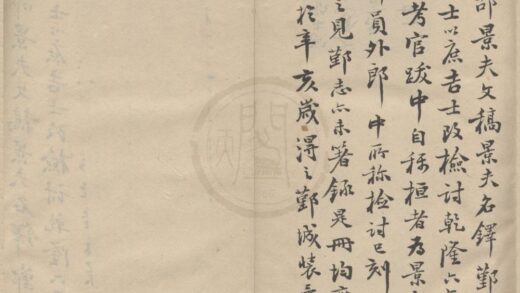 邵景夫文稿景夫名鐸鄞
士以庶吉士改檢討乾隆六
考官跋中自稱桓者為景
員外郎中所稱檢討已刻
之見鄞志亦未著錄是冊均
於辛亥歲得之鄞城裝